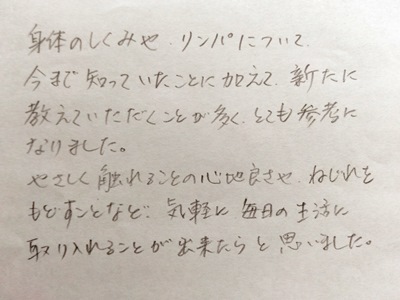 身体のしくみや、リンパについて、
今まで知っていたことに加えて、新たに
教えていただくことが多く、とても参考に
なりました。
やさしく触れることの心地良さや、ねじれを
もどすことなど、気軽に毎日の生活に
取り入れることが出来たらと思いました。